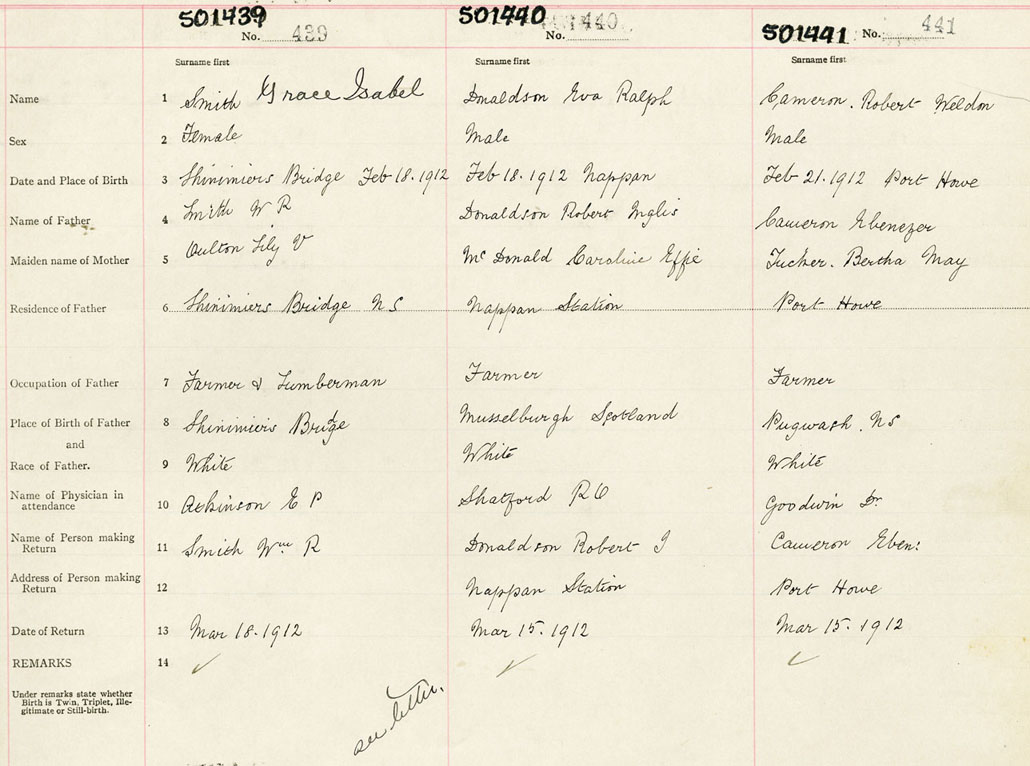 501439 501440 501441
No. 439 No. 440 No. 441
Surname first Surname first Surname first
Name 1 Smith Grace Isabel Donaldson Eva Ralph Cameron. Robert Weldon
Sex 2 Female Male Male
Date and Place of Birth 3 Shinimiers Bridge Feb 18.1912 Feb 18.1912 Nappan Feb 21.1912 Port Howe
Name of Father 4 Smith W R Donaldson Robert Inglis Cameron Ebenezer
Maiden name of Mother 5 Oulton Lily V Mc Donald Caroline Effie Tucker. Bertha May
Residence of Father 6 Shinimiers Bridge NS Nappan Station Port Howe
Occupation of Father 7 Farmer & Lumberman Farmer Farmer
Place of Birth of Father 8 Shinimiers Bridge Musselburgh Scotland Pugwash. NS
and
Race of Father. 9 White White White
Name of Physician in
attendance 10 Atkinson E P Shatford R O Goodwin Dr
Name of Person making
Return 11 Smith Wm R Donaldson Robert I Cameron Eben:
Address of Person making
Return 12 Nappan Station Port Howe
Date of Return 13 Mar 18.1912 Mar 15.1912 Mar 15.1912
REMARKS 14 ✓ ✓ ✓
Under remarks state whether
Birth is Twin, Triplet, Ille-
gitimate or Still-birth.
see letter.